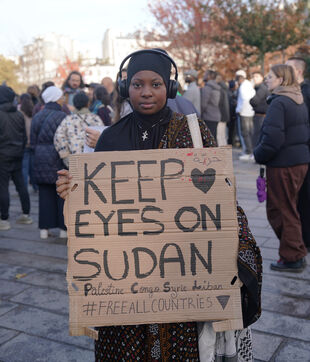 KEEP
EYES ON
SUDAN
Palestine Congo Syrie Liban
#FREEALLCOUNTRIES